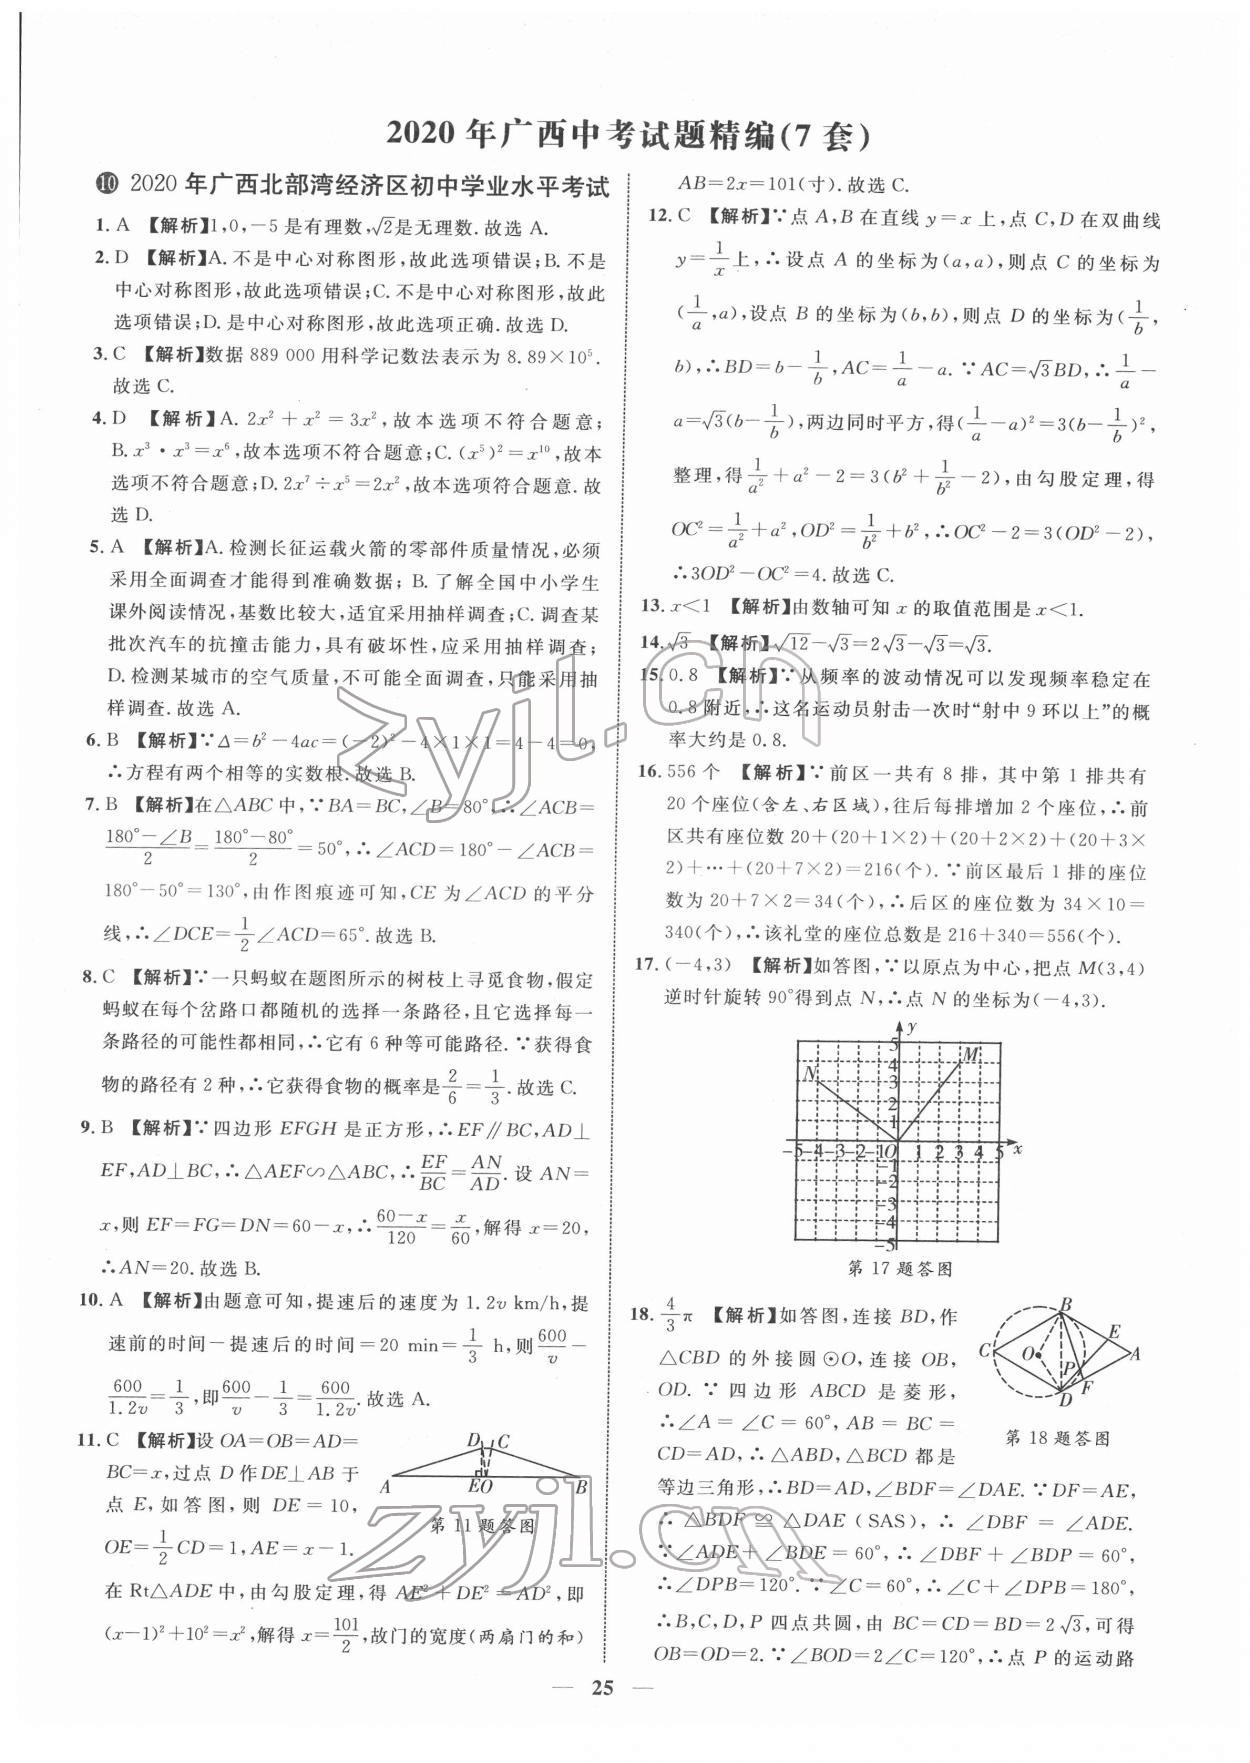 2020 年广西中考试题精编(7 套)
⑩ 2020 年广西北部湾经济区初中学业水平考试
1. A 【解析】1,0,-5 是有理数,√2是无理数.故选 A.
2. D 【解析】A. 不是中心对称图形,故此选项错误;B. 不是
中心对称图形,故此选项错误;C. 不是中心对称图形,故此
选项错误;D. 是中心对称图形,故此选项正确.故选 D.
3. C 【解析】数据 889 000 用科学记数法表示为 8.89×10⁵.
故选 C.
4. D 【解析】A. 2x²+x²=3x²,故本选项不符合题意;
B. x³·x³=x⁶,故本选项不符合题意;C. (x⁵)²=x¹⁰,故本
选项不符合题意;D. 2x⁷÷x⁵=2x²,故本选项符合题意.故
选 D.
5. A 【解析】A. 检测长征运载火箭的零部件质量情况,必须
采用全面调查才能得到准确数据; B. 了解全国中小学生
课外阅读情况,基数比较大,适宜采用抽样调查;C. 调查某
批次汽车的抗撞击能力,具有破坏性,应采用抽样调查;
D. 检测某城市的空气质量,不可能全面调查,只能采用抽
样调查.故选 A.
6. B 【解析】∵Δ=b²-4ac=(-2)²-4×1×1=4-4=0,
∴方程有两个相等的实数根.故选 B.
7. B 【解析】在△ABC 中,∵BA=BC,∠B=80°,∴∠ACB=
(180°-∠B)/2=(180°-80°)/2=50°,∴∠ACD=180°-∠ACB=
180°-50°=130°,由作图痕迹可知,CE 为∠ACD 的平分
线,∴∠DCE=1/2∠ACD=65°.故选 B.
8. C 【解析】∵一只蚂蚁在题图所示的树枝上寻觅食物,假定
蚂蚁在每个岔路口都随机的选择一条路径,且它选择每一
条路径的可能性都相同,∴它有 6 种等可能路径.∵获得食
物的路径有 2 种,∴它获得食物的概率是2/6=1/3.故选 C.
9. B 【解析】∵四边形 EFGH 是正方形,∴EF∥BC,AD⊥
EF,AD⊥BC,∴△AEF∽△ABC,∴EF/BC=AN/AD.设 AN=
x,则 EF=FG=DN=60-x,∴(60-x)/120=x/60,解得 x=20,
∴AN=20.故选 B.
10. A 【解析】由题意可知,提速后的速度为 1.2v km/h,提
速前的时间-提速后的时间=20 min=1/3 h,则600/v-
600/1.2v=1/3,即600/v-1/3=600/1.2v.故选 A.
11. C 【解析】设 OA=OB=AD=
BC=x,过点 D 作DE⊥AB 于
点 E,如答图,则 DE=10,
OE=1/2CD=1,AE=x-1.
D C
A EO B
第 11 题答图
在 Rt△ADE 中,由勾股定理,得 AE²+DE²=AD²,即
(x-1)²+10²=x²,解得 x=101/2,故门的宽度(两扇门的和)
AB=2x=101(寸).故选 C.
12. C 【解析】∵点 A,B 在直线 y=x 上,点 C,D 在双曲线
y=1/x上,∴设点 A 的坐标为(a,a),则点 C 的坐标为
(1/a,a),设点 B 的坐标为(b,b),则点 D 的坐标为(1/b,
b),∴BD=b-1/b,AC=1/a-a.∵AC=√3BD,∴1/a-
a=√3(b-1/b),两边同时平方,得(1/a-a)²=3(b-1/b)²,
整理,得1/a²+a²-2=3(b²+1/b²-2),由勾股定理,得
OC²=1/a²+a²,OD²=1/b²+b²,∴OC²-2=3(OD²-2),
∴3OD²-OC²=4.故选 C.
13. x<1 【解析】由数轴可知 x 的取值范围是 x<1.
14. √3 【解析】√12-√3=2√3-√3=√3.
15. 0.8 【解析】∵从频率的波动情况可以发现频率稳定在
0.8 附近,∴这名运动员射击一次时“射中 9 环以上”的概
率大约是 0.8.
16. 556 个 【解析】∵前区一共有 8 排,其中第 1 排共有
20 个座位(含左、右区域),往后每排增加 2 个座位,∴前
区共有座位数 20+(20+1×2)+(20+2×2)+(20+3×
2)+…+(20+7×2)=216(个).∵前区最后 1 排的座位
数为 20+7×2=34(个),∴后区的座位数为 34×10=
340(个),∴该礼堂的座位总数是 216+340=556(个).
17. (-4,3) 【解析】如答图,∵以原点为中心,把点 M(3,4)
逆时针旋转 90°得到点 N,∴点 N 的坐标为(-4,3).
y
5
4 M
N 3
2
1
-5-4-3-2-1O 1 2 3 4 5 x
-1
-2
-3
-4
-5
第 17 题答图
18. 4/3π 【解析】如答图,连接 BD,作
△CBD 的外接圆⊙O,连接 OB,
OD.∵四边形 ABCD 是菱形,
∴∠A=∠C=60°,AB=BC=
CD=AD,∴△ABD,△BCD 都是
B
E
C O A
P
F
D
第 18 题答图
等边三角形,∴BD=AD,∠BDF=∠DAE.∵DF=AE,
∴△BDF≌△DAE(SAS),∴∠DBF=∠ADE.
∵∠ADE+∠BDE=60°,∴∠DBF+∠BDP=60°,
∴∠DPB=120°.∵∠C=60°,∴∠C+∠DPB=180°,
∴B,C,D,P 四点共圆,由 BC=CD=BD=2√3,可得
OB=OD=2.∵∠BOD=2∠C=120°,∴点 P 的运动路
— 25 —
zyjl.cn
zyjl.cn